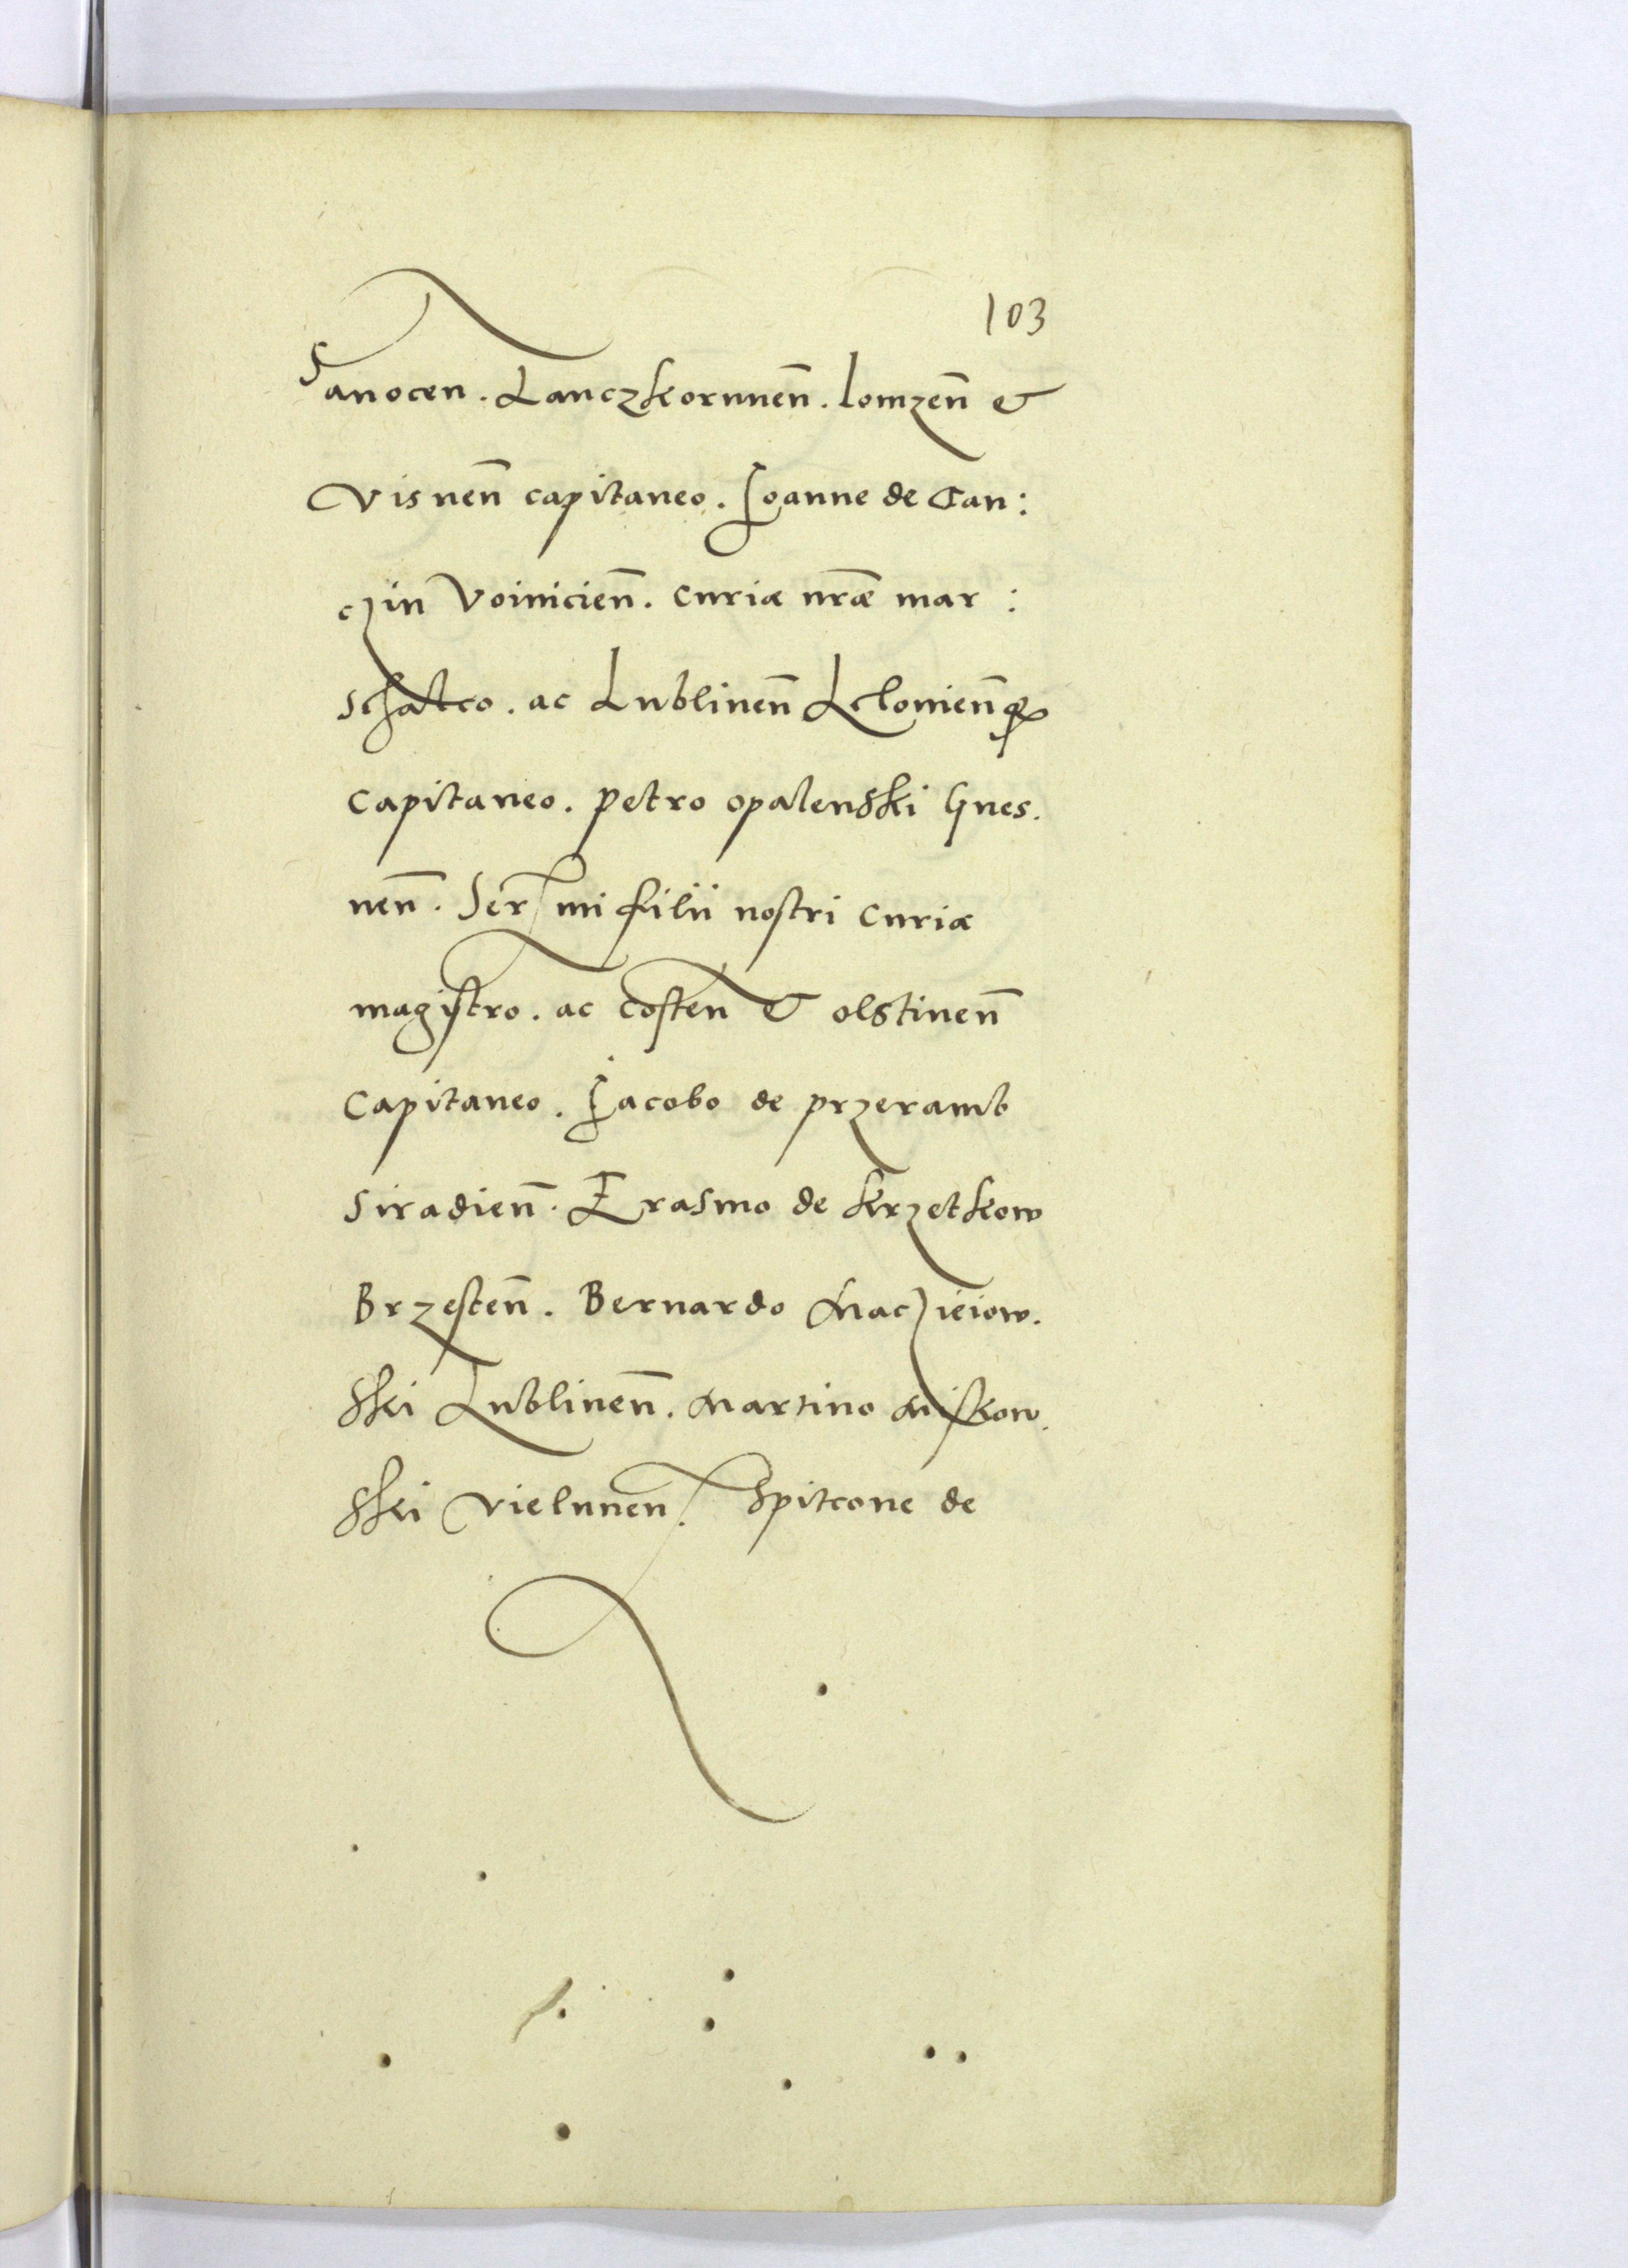 103
Sanocen. Lanczkorunen̄. lomzen̄ &
Visnen̄ capitaneo. Ioanne de Tan:
czin Voinicien̄. curiæ nr̄æ mar:
schalco. ac Lublinen̄ Lelouien̄q̢
Capitaneo. Petro opalenski Gnes.
nen̄. Ser mi filii nostri curiæ
magistro. ac Costen & olstinen̄
Capitaneo. Iacobo de przeramb
Siradien̄. Erasmo de krzetkow
Brzesten̄. Bernardo Maczieiow.
ski Lublinen̄. Martino Miskow.
ski Vielunen. Spitcone de